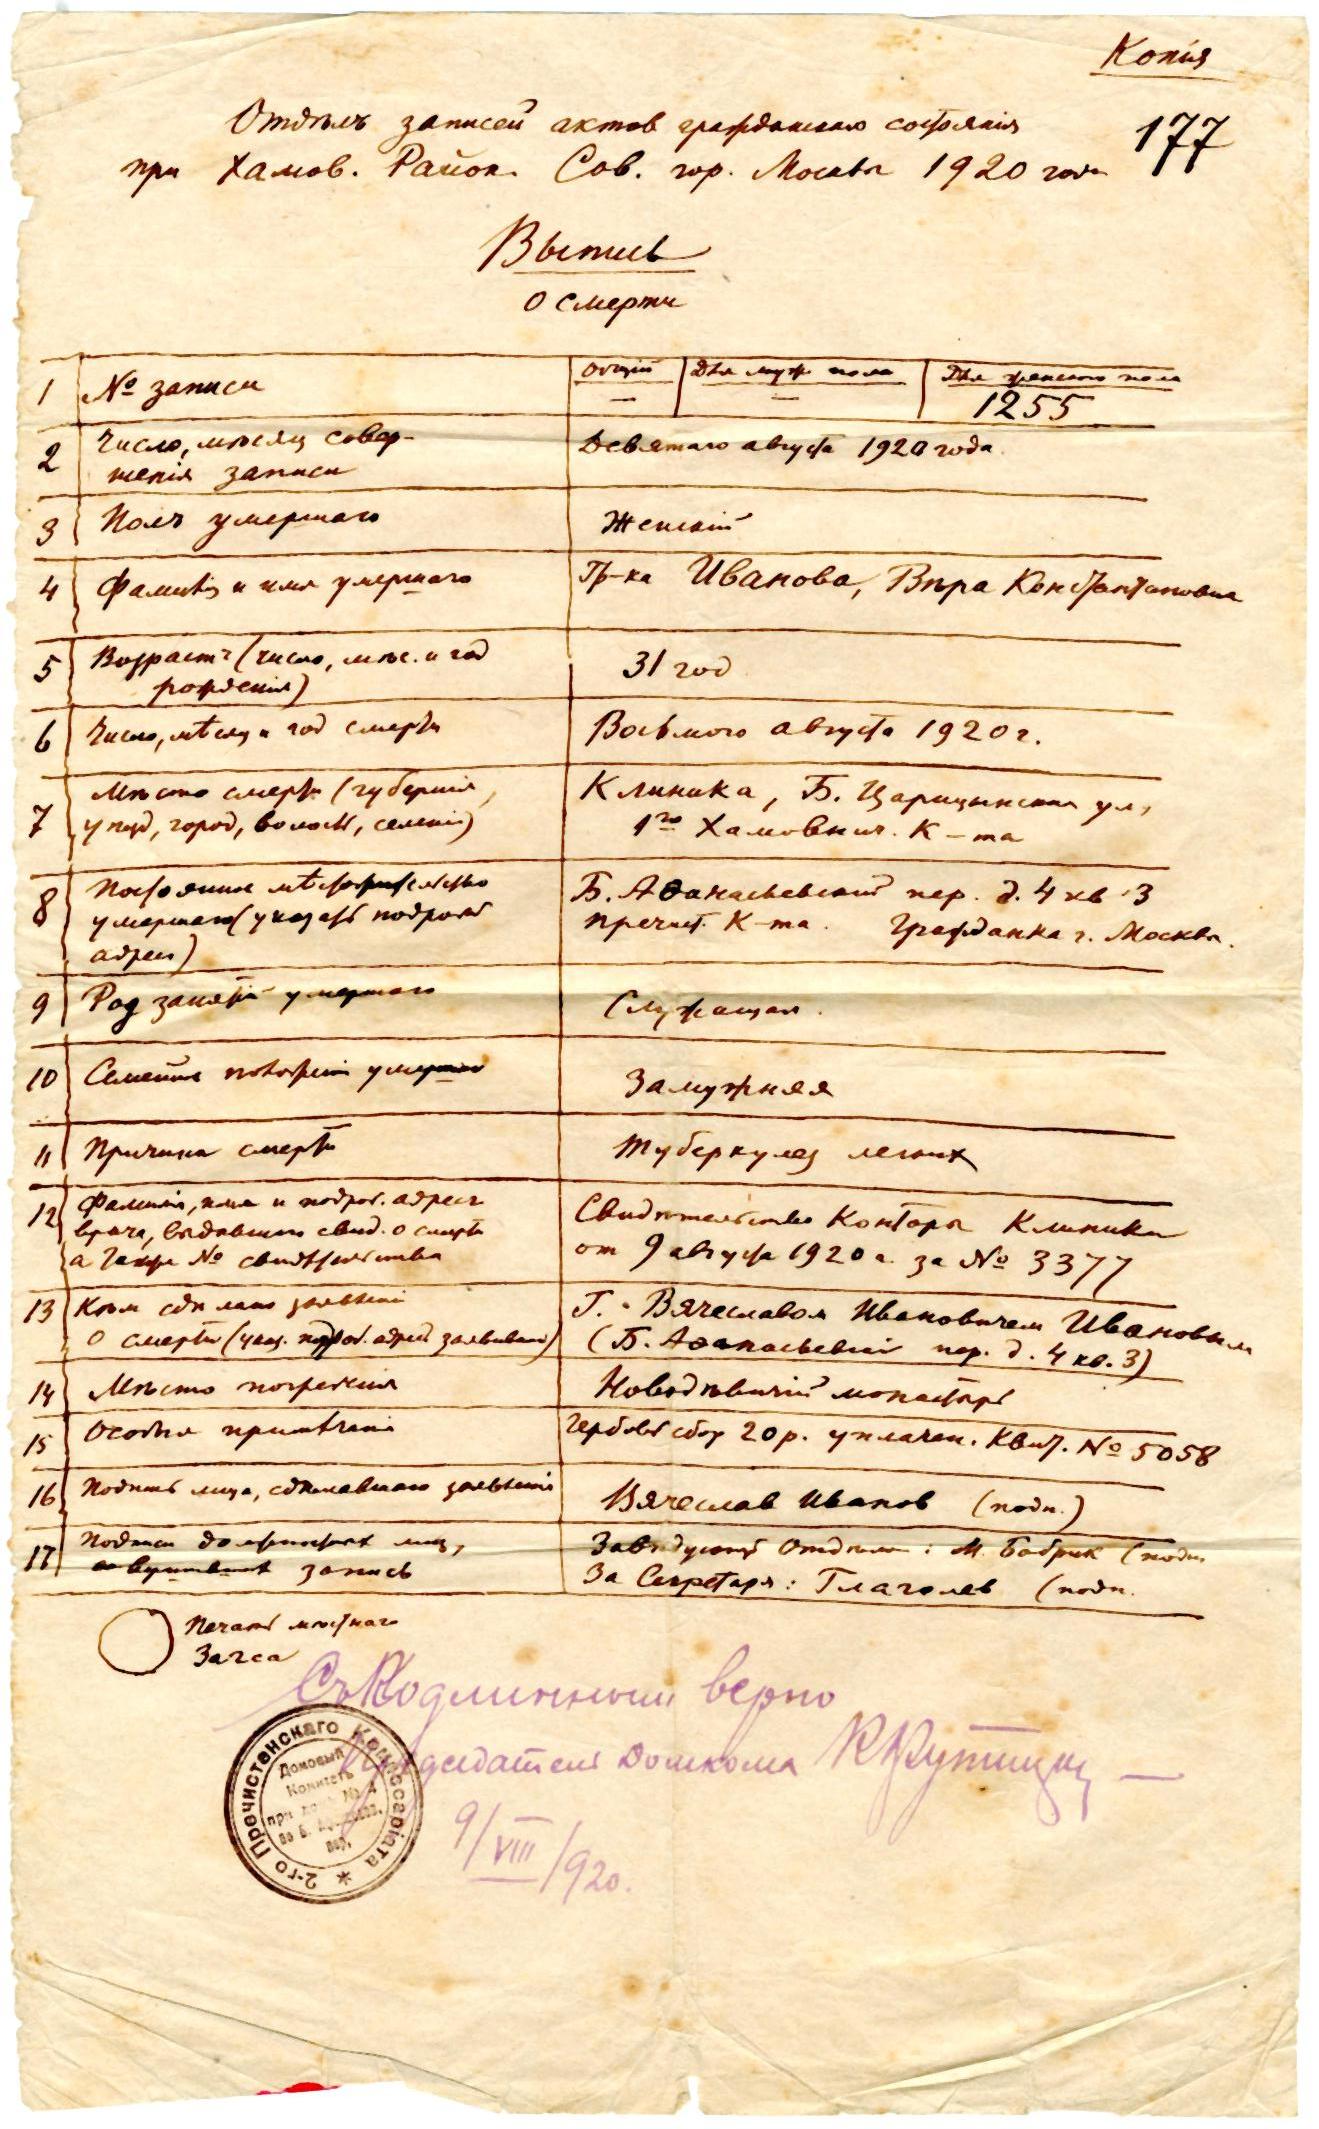 Копія
177
Отдѣлъ записей актов гражданскаго состоянія
при Хамов. Район. Сов. гор. Москвы 1920 года
Выпись
о смерти
1 № записи Общій — Для муж пола — Для женскаго пола 1255
2 Число, мѣсяц совер-
шенія записи Девятаго августа 1920 года
3 Полъ умершаго Женскій
4 Фамилія и имя умершаго Гр-ка Иванова, Вѣра Константиновна
5 Возрастъ (число, мѣс. и год
рожденія) 31 год
6 Число, мѣсяц и год смерти Восьмого августа 1920 г.
7 Мѣсто смерти (губернія, Клиника, Б. Царицынская ул,
уѣзд, город, волость, селеніе) 1го Хамовнич. К-та
8 Постоянное мѣстожительство Б. Афанасьевскій пер. д. 4 кв 3
умершаго (указать подробный Пречист. К-та. Гражданка г. Москвы.
адрес)
9 Род занятій умершаго Служащая.
10 Семейное положеніе умершаго Замужняя
11 Причина смерти Туберкулез легких
12 Фамилія, имя и подроб. адресъ Свидѣтельство Конторы Клиники
врача, выдавшаго свид. о смерти от 9 августа 1920 г. за № 3377
а также № свидѣтельства
13 Кѣм сдѣлано заявленіе Г. Вячеславом Ивановичем Ивановым
о смерти (указ. подроб. адрес заявившаго) (Б. Афанасьевскій пер. д. 4 кв. 3)
14 Мѣсто погребенія Новодѣвичій монастырь
15 Особыя примѣчанія Гербовый сбор 20 р. уплачен. Квит. № 5058
16 Подпись лица, сдѣлавшаго заявленіе Вячеслав Иванов (подп.)
17 Подписи должностных лиц, Завѣдующій Отдѣлом: М. Бобрик (подп.
совершивших запись За Секретаря: Глаголев (подп.
Печать мѣстнаго
Загса
Съ Подлинным верно
Председатель Домкома
9/VIII/920.
2-го Пречистенскаго Коммиссаріата
Домовый
Комитетъ
при домѣ № 4
по Б.
пер.